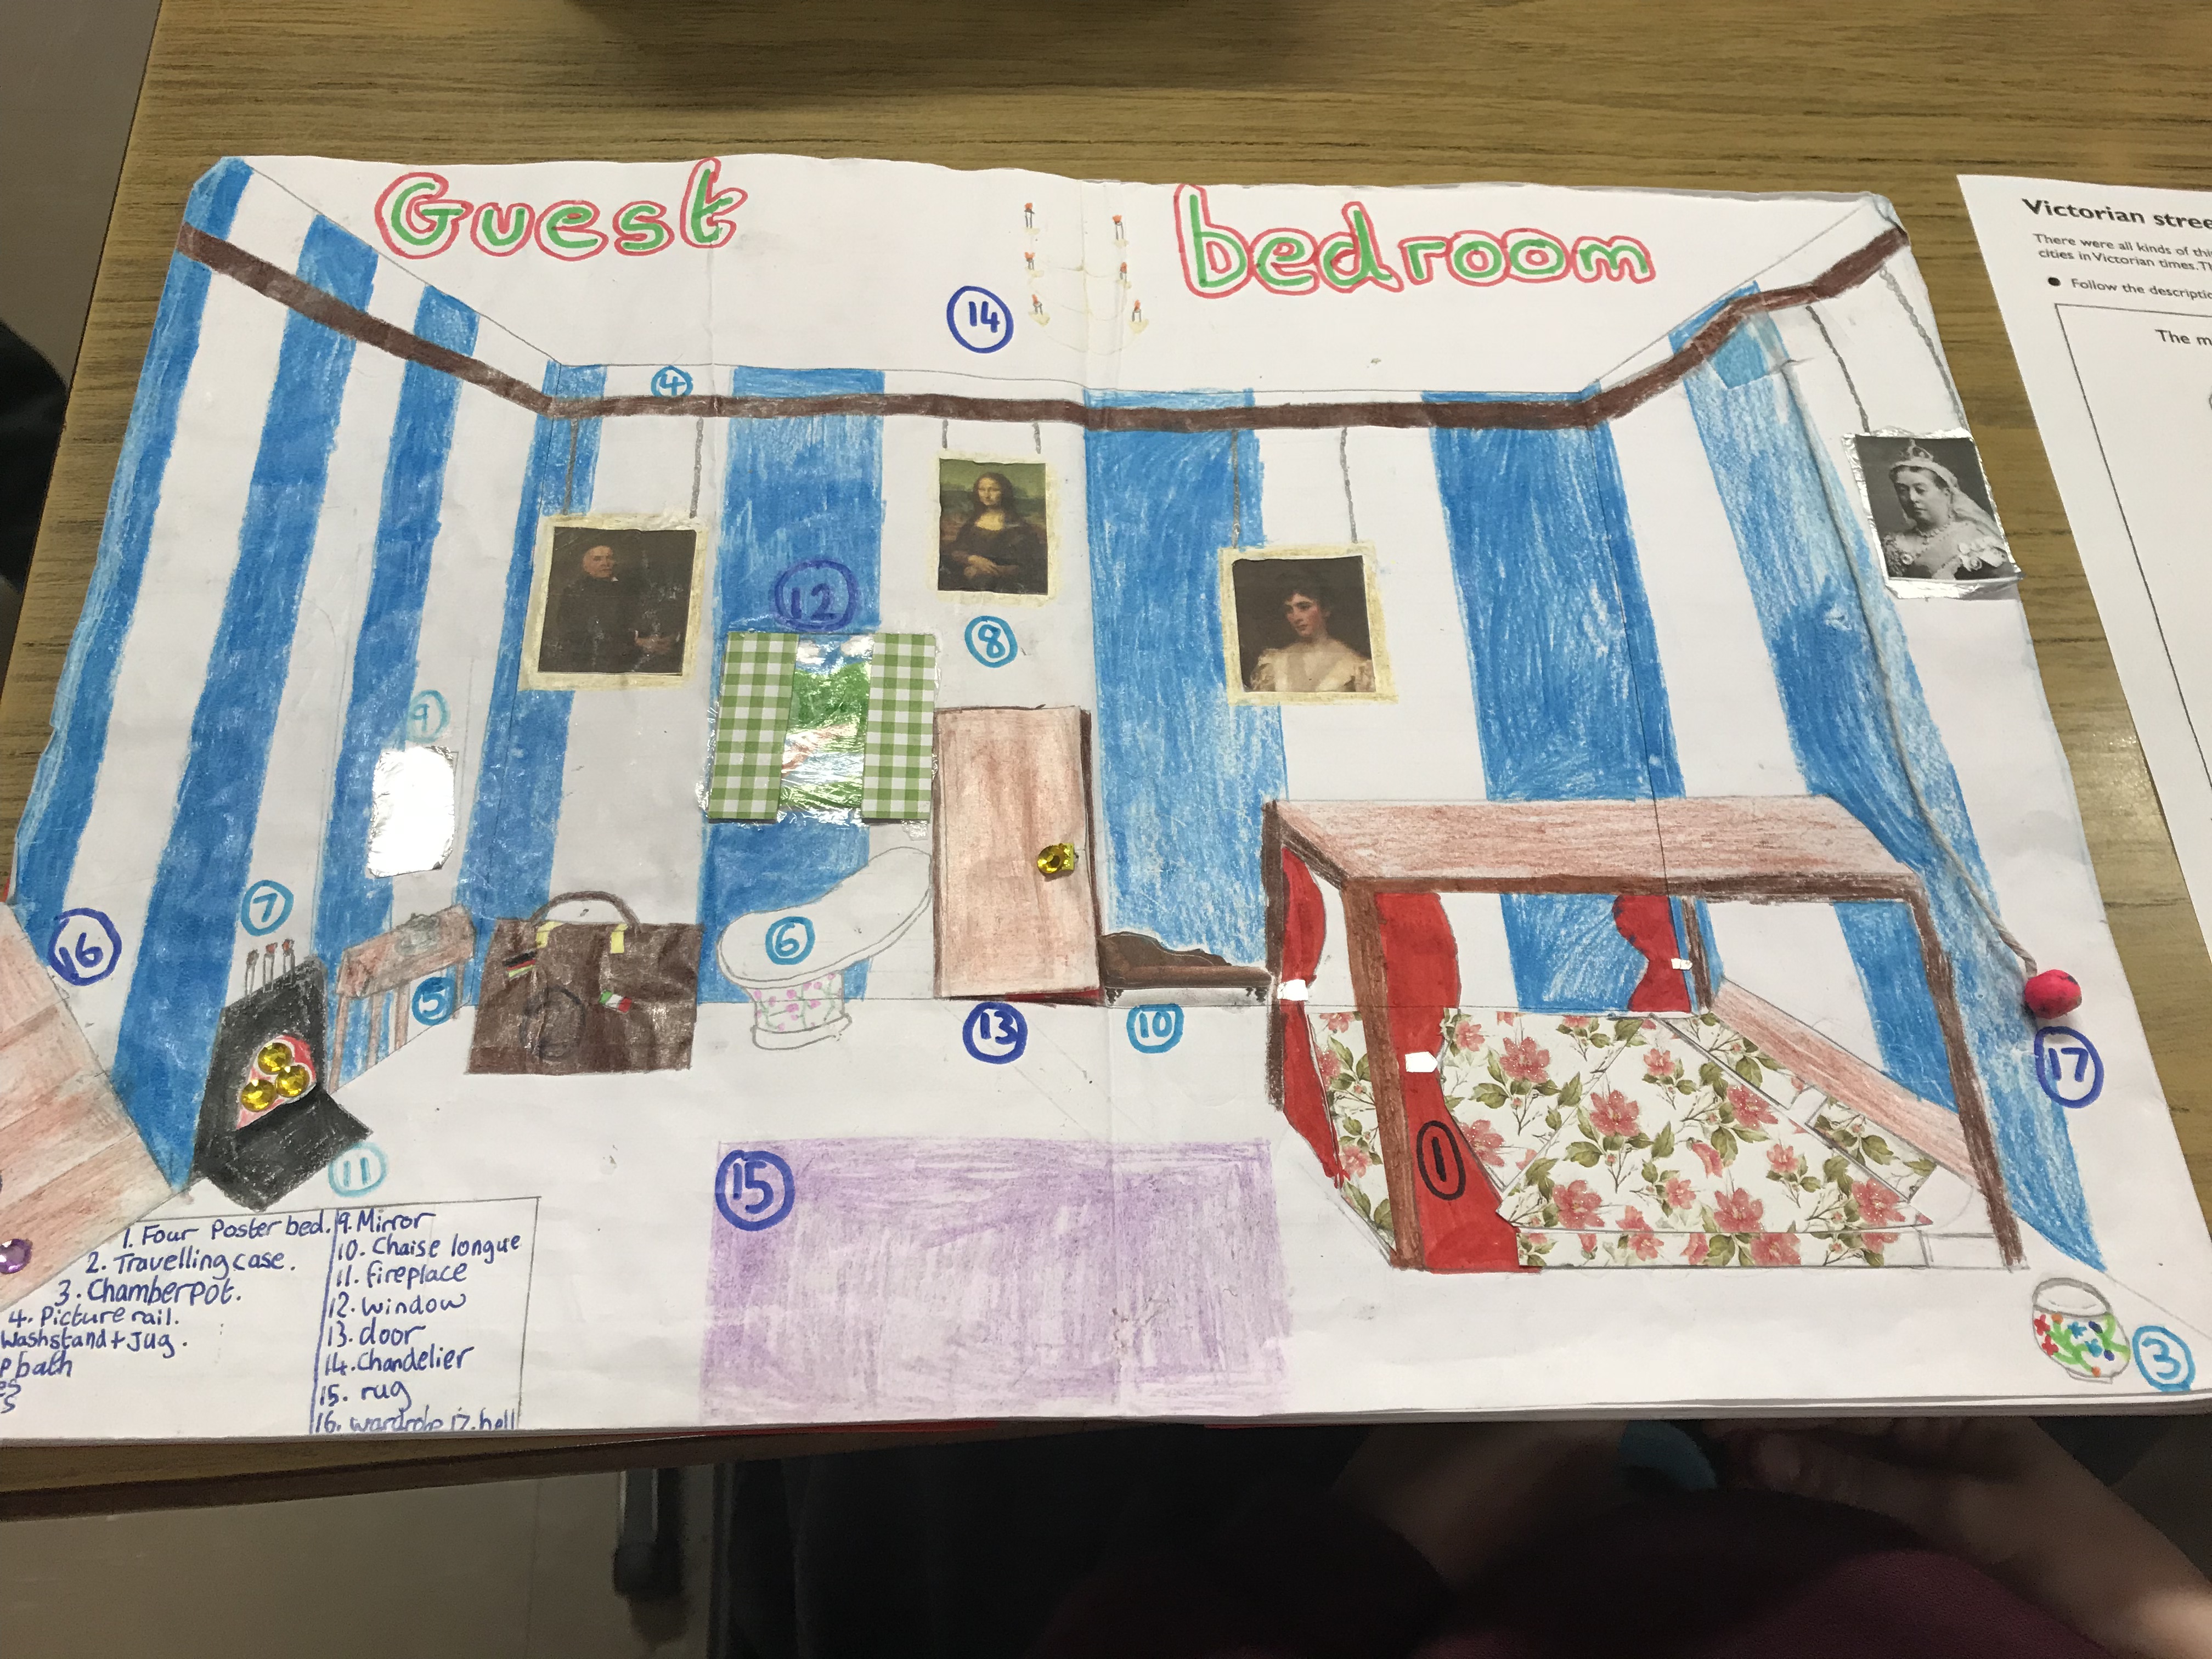 Guest bedroom
14
4
12
8
9
7
16
6
5
13
10
17
11
1
15
3
1. Four Poster bed.
2. Travelling case.
3. Chamberpot.
4. Picture rail.
Washstand + Jug.
p bath
9. Mirror
10. Chaise longue
11. fireplace
12. window
13. door
14. Chandelier
15. rug
16. wardrobe 17. bell
Victorian stree
There were all kinds of thi
cities in Victorian times. Th
● Follow the descriptio
The m